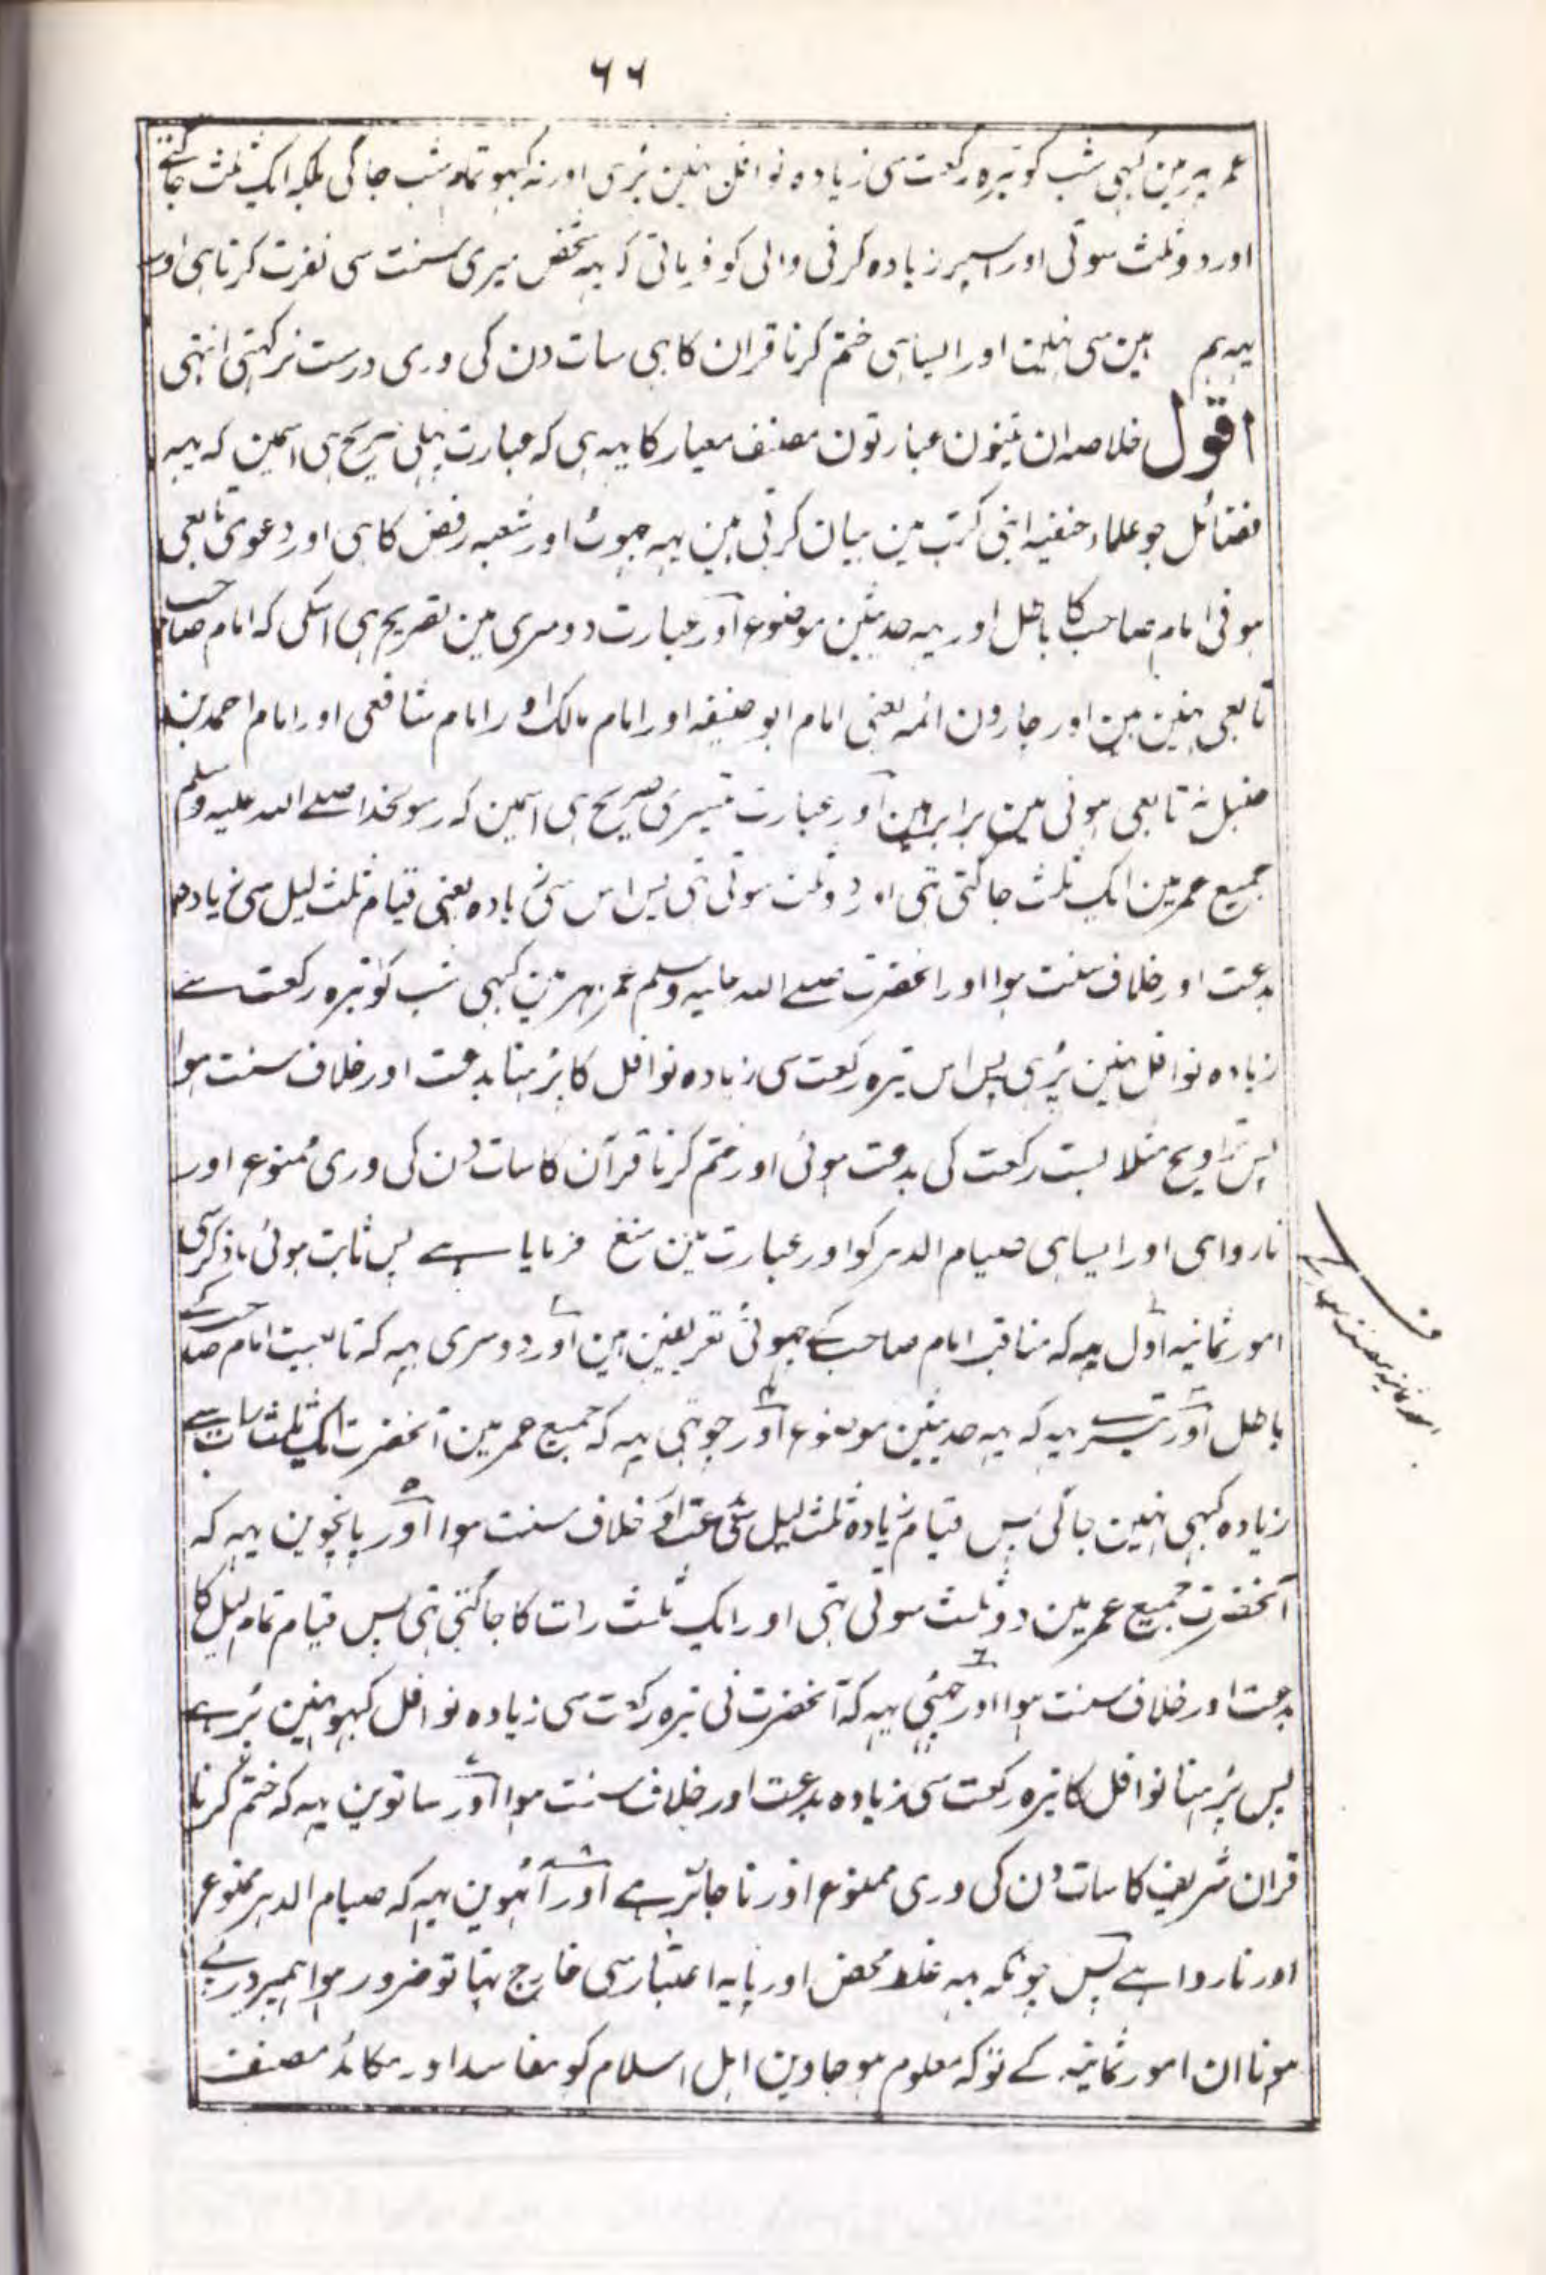 ۶۶
عمر بہر مین کبہی شب کو تیرہ رکعت سی زیادہ نوافل نہین پڑہی اور نہ کبہو تمام شب جاگی بلکہ ایک ثلث جاگتے
اور دو ثلث سوتی اور اسپر زیادہ کرنی والی کو فرماتی کہ یہہ شخص میری سنت سی نفرت کرتا ہی اور
یہہ ہم مین سی نہین اور ایسا ہی ختم کرنا قران کا ہی سات دن کی وری درست نرکہتی انتہی
اقول خلاصہ ان تینون عبارتون مصنف معیار کا یہہ ہی کہ عبارت پہلی صریح ہی اسمین کہ یہہ
فضائل جو علماء حنفیہ اپنی کتب مین بیان کرتی ہین یہہ جہوٹ اور شعبہ رفض کا ہی اور دعوی تابعی
ہونی امام صاحب کا باطل اور یہہ حدیثین موضوع اور عبارت دوسری مین تصریح ہی اسکی کہ امام صاحب
تابعی نہین ہین اور چارون ائمہ یعنی امام ابو حنیفہ اور امام مالک اور امام شافعی اور امام احمد بن
حنبل نہ تابعی ہونی مین برابر ہین اور عبارت تیسری صریح ہی اسمین کہ رسولخدا صلے اللہ علیہ وسلم
جمیع عمر مین ایک ثلث جاگتی تہی اور دو ثلث سوتی تہی پس اس سی زیادہ یعنی قیام ثلث لیل سی زیادہ
بدعت اور خلاف سنت ہوا اور انحضرت صلے اللہ علیہ وسلم عمر بہر مین کبہی شب کو تیرہ رکعت سے
زیادہ نوافل نہین پڑہی پس اس تیرہ رکعت سی زیادہ نوافل کا پڑہنا بدعت اور خلاف سنت ہوا
پس تراویح مثلا بست رکعت کی بدعت ہوئی اور ختم کرنا قرآن کا سات دن کی وری ممنوع اور
ناروا ہی اور ایسا ہی صیام الدہر کو اور عبارت مین منع فرمایا ہے پس ثابت ہوئی
امور ثمانیہ اول یہہ کہ مناقب امام صاحب کے جہوٹی تعریفین ہین اور دوسری یہہ کہ تابعیت امام صاحب کے
باطل اور تیسرے یہہ کہ یہہ حدیثین موضوع اور چوتہی یہہ کہ جمیع عمر مین آنحضرت ایک ثلث رات سے
زیادہ کبہی نہین جاگی پس قیام زیادہ ثلث لیل سی بدعت اور خلاف سنت ہوا اور پانچوین یہہ کہ
آنحضرت جمیع عمر مین دو ثلث سوتی تہی اور ایک ثلث رات کا جاگتی تہی پس قیام تمام لیل کا
بدعت اور خلاف سنت ہوا اور چہٹی یہہ کہ آنحضرت نی تیرہ رکعت سی زیادہ نوافل کبہو نہین پڑہے
پس پڑہنا نوافل کا تیرہ رکعت سی زیادہ بدعت اور خلاف سنت ہوا اور ساتوین یہہ کہ ختم کرنا
قران شریف کا سات دن کی وری ممنوع اور نا جائز ہے اور آٹہوین یہہ کہ صیام الدہر ممنوع
اور ناروا ہے پس چونکہ یہہ غلط محض اور پایہ اعتبار سی خارج تہا تو ضرور ہوا ہمپر درپے
ہونا ان امور ثمانیہ کے توکہ معلوم ہوجاوین اہل اسلام کو مفاسد اور مکائد مصنف